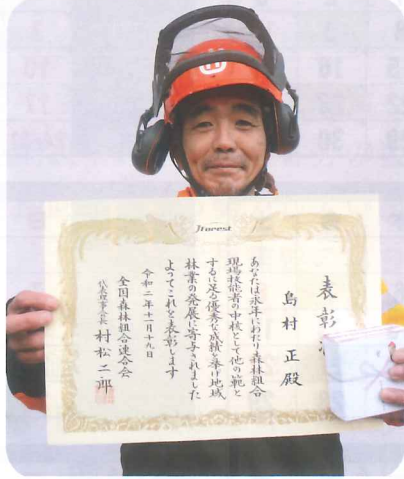 Jforest
表彰
島村 正殿
あなたは永年にわたり森林組合
現場技能者の中核として他の範と
するに足る優秀な成績を挙げ地域
林業の発展に寄与されました
よってこれを表彰します
令和二年十一月十九日
全国森林組合連合会
代表理事会長 村松二郎